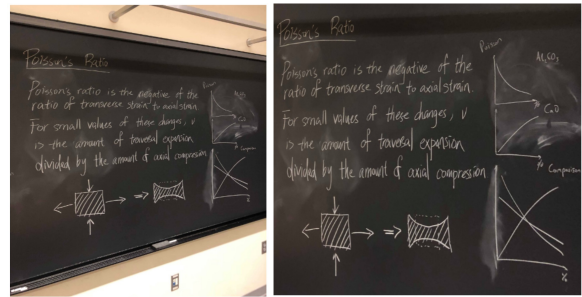 Poisson's Ratio
Poisson's ratio is the negative of the
ratio of transverse strain to axial strain.
For small values of these changes, ν
is the amount of traversal expansion
divided by the amount of axial compression
Al₂SO₃
CaO
Composition
%
Poisson's Ratio
Poisson's ratio is the negative of the
ratio of transverse strain to axial strain.
For small values of these changes, ν
is the amount of traversal expansion
divided by the amount of axial compression
Poisson's
Al₂SO₃
%
CaO
%
Composition
%